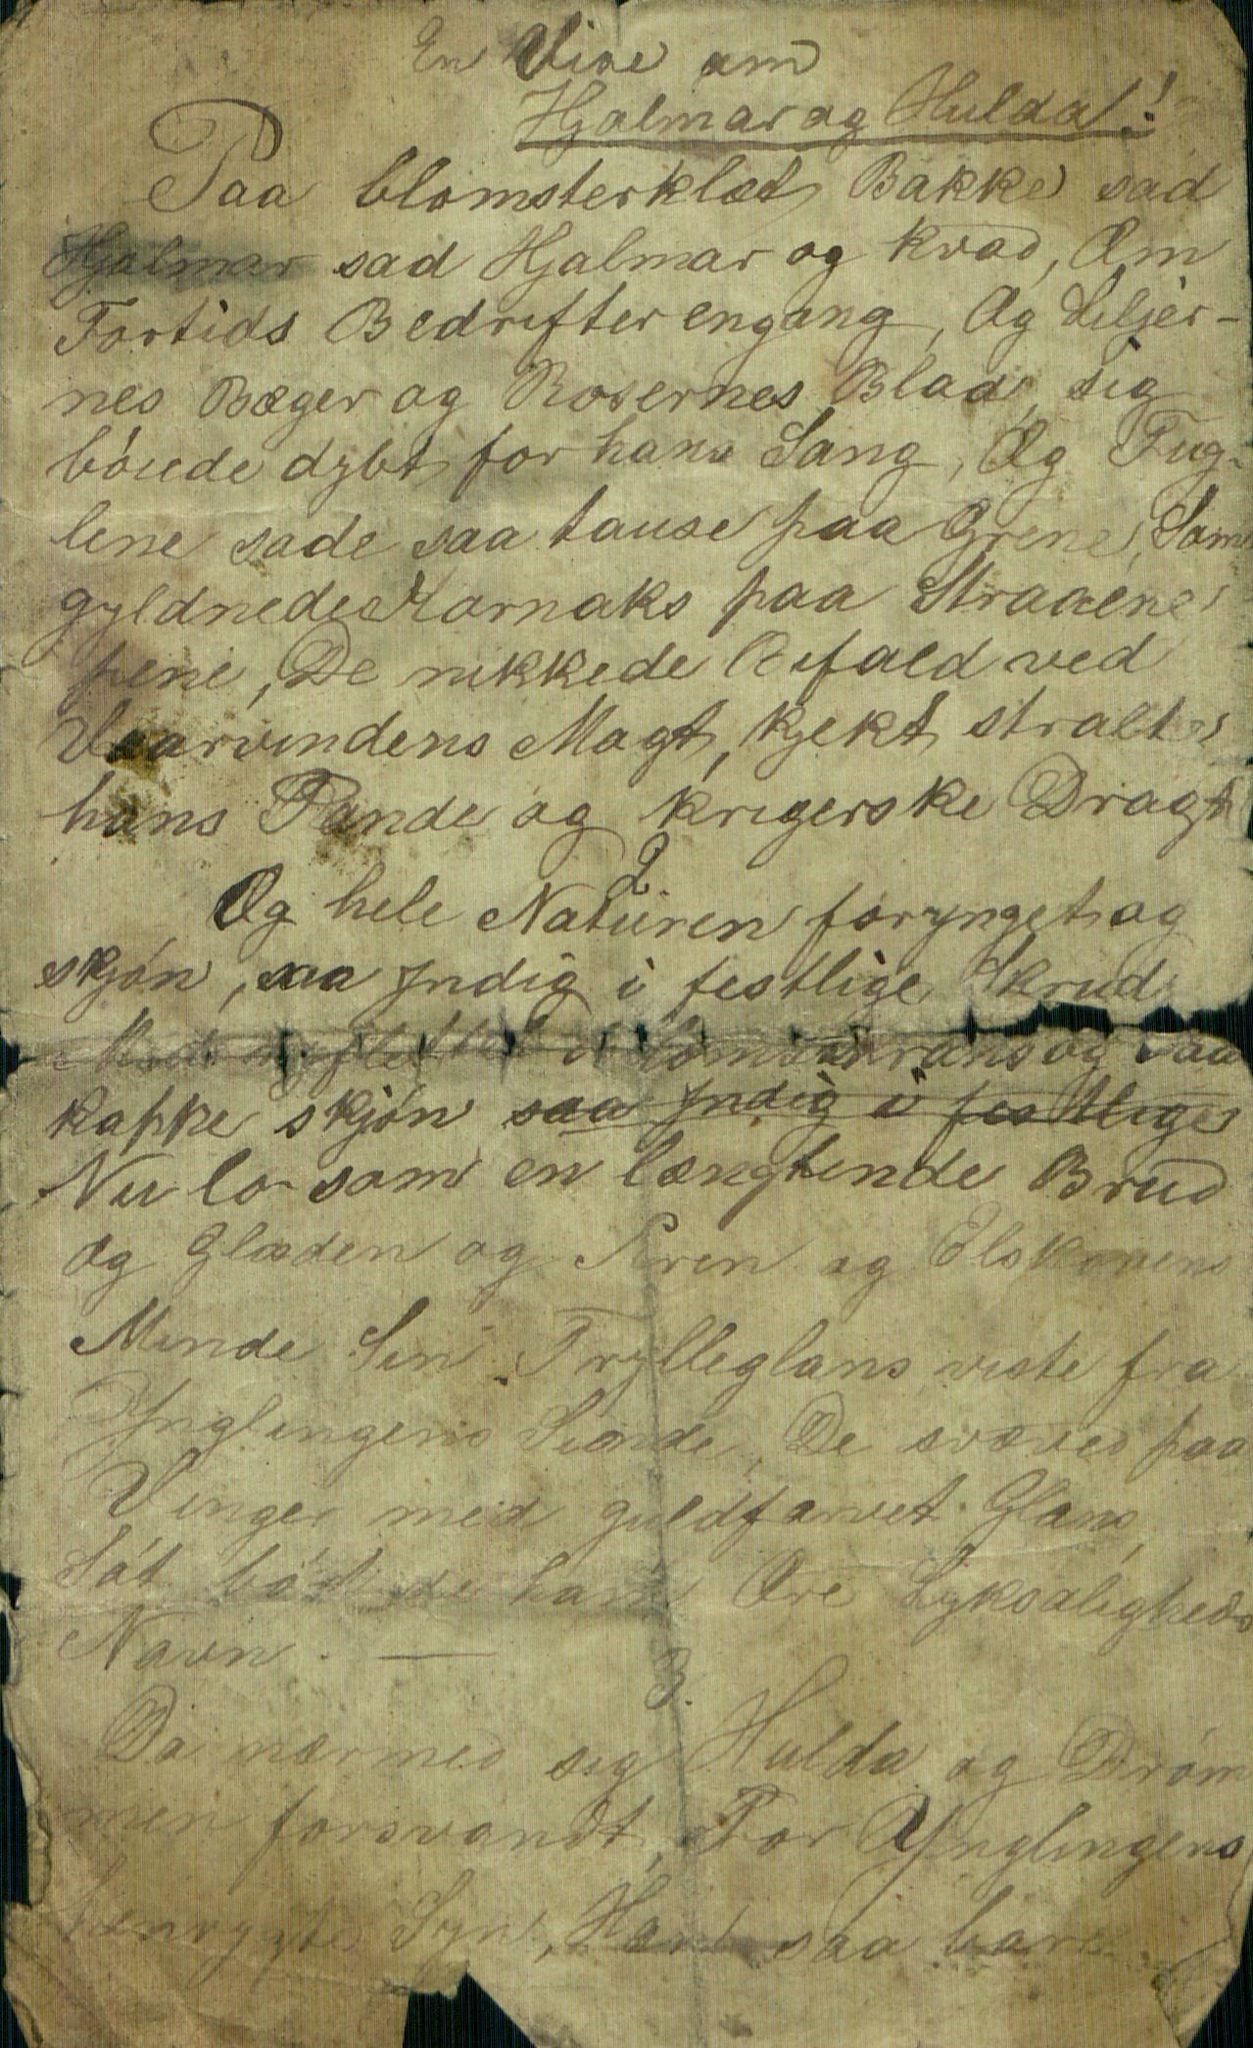 En Vise om
Hjalmar og Hulda!
Paa blomsterklæt Bakke sad
Hjalmar sad Hjalmar og kvad, Om
Fortids Bedrifter engang, Og Liljer-
nes Bæger og Rosernes Blad sig
bóiede dybt for hans Sang, Og Fug-
lene sade saa tause paa Grene, Som
gyldnede Kornaks paa Straaene
pene, De nikkede Bifald ved
Vaarvindens Magt, kjekt stralte
hans Pande og krigerske Dragt
2
Og hele Naturen forynget og
skjón, saa Yndig i festlige Skrud
og saa
kappe skjón saa Yndig i festlige
Nu lo som en længtende Brud
og Glæden og Æren og Elskovens
Minde Sin Trylleglans viste fra
Ynglingens Siade, De svæved paa
Vinger med guldfarvet Glans
Sót bód de ham Ære Lyksaligheds
Navn. —
3.
Da nærmed sig Hulda og Dróm
men forsvandt, For Ynglingens
henrygte Syn, Han saa bare